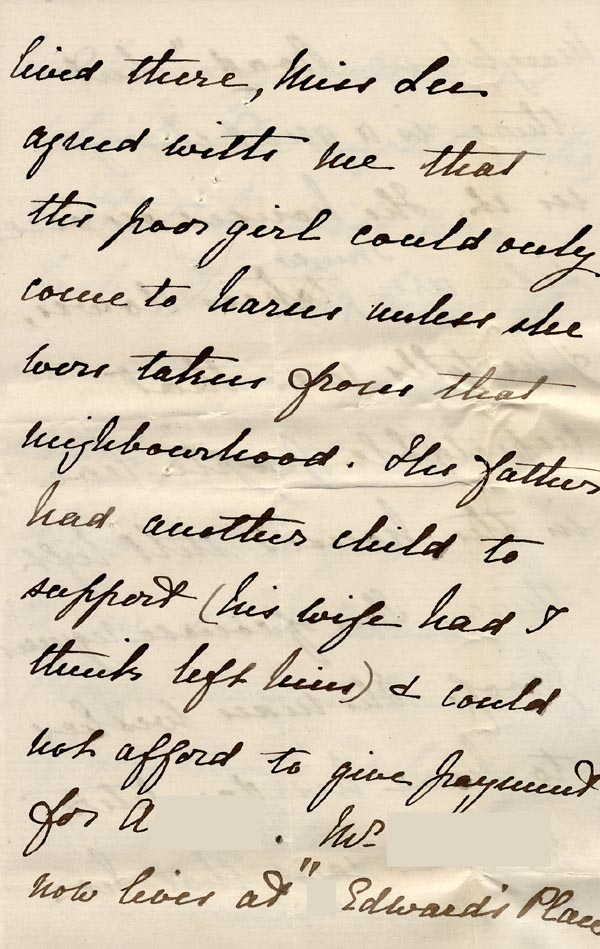 lived there, Miss Lee
agreed with me that
the poor girl could only
come to harm unless she
were taken from that
neighbourhood. The father
had another child to
support (his wife had I
think left him) & could
not afford to give payment
for A . Mr
now lives at " Edward's Place